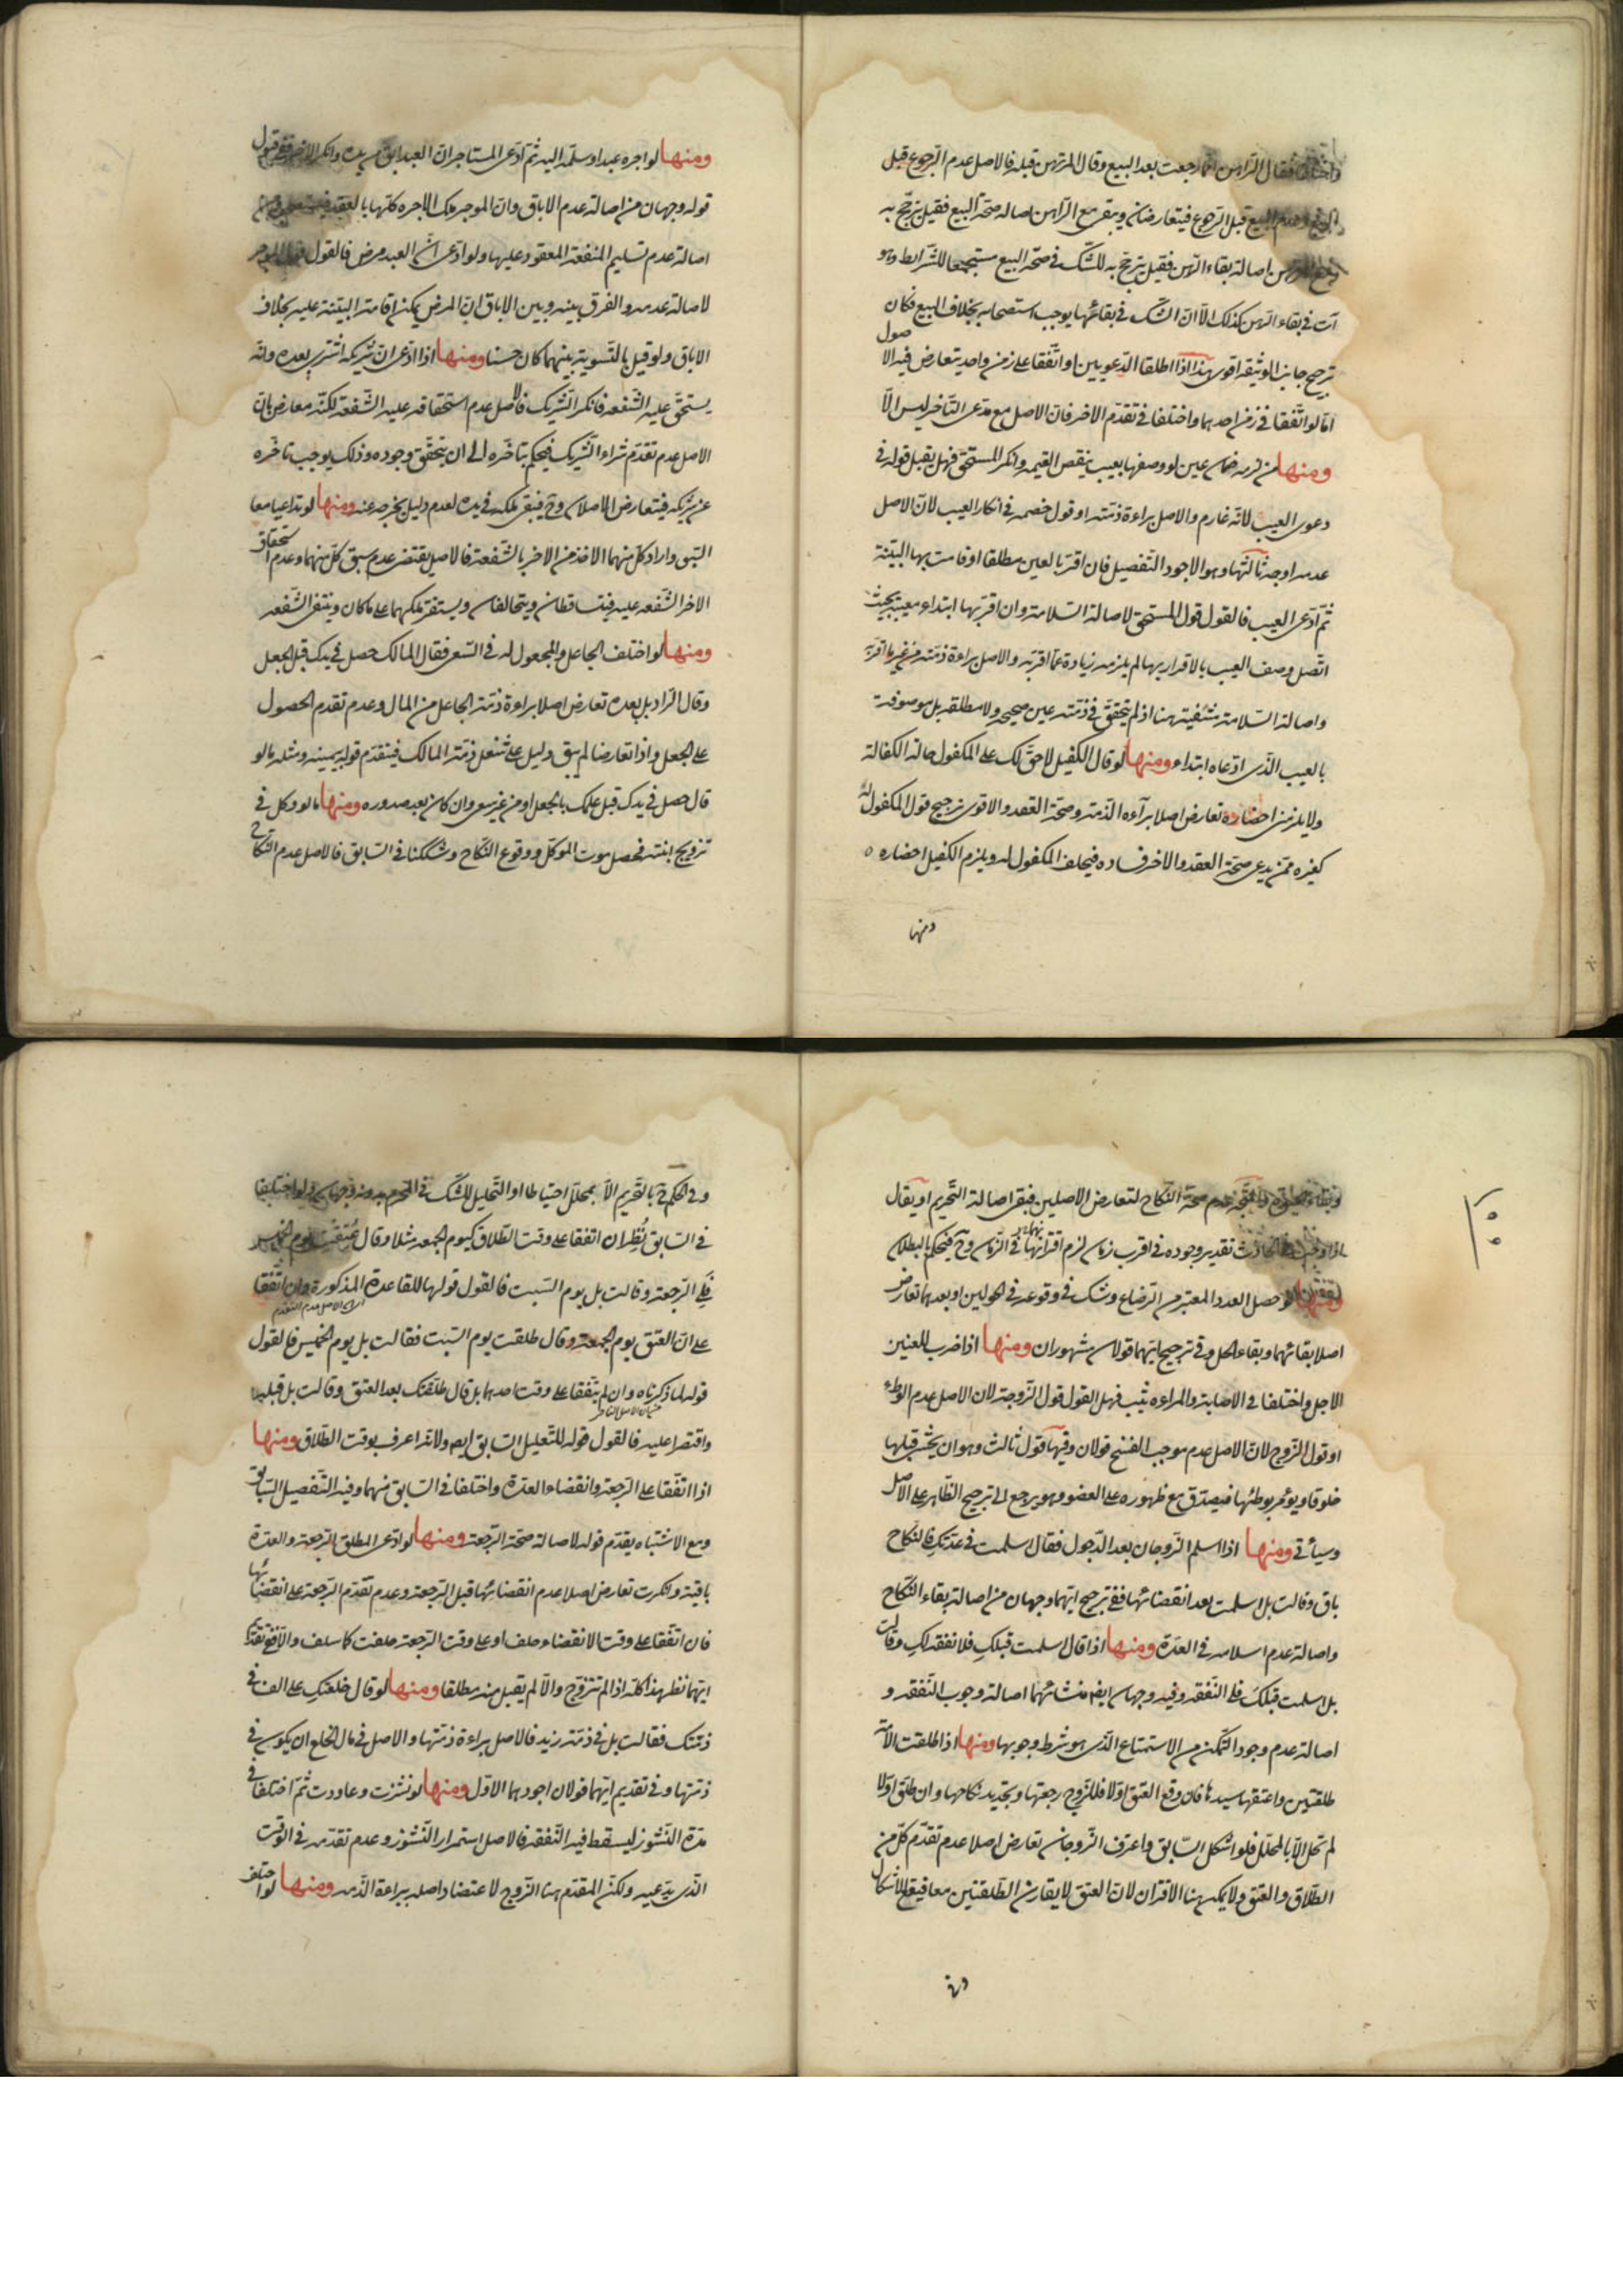 واختلفا فقال الراهن انما رجعت بعد البيع وقال المرتهن قبله فالاصل عدم الرجوع قبل
البيع وعدم البيع قبل الرجوع فيتعارضان ويبقى مع الراهن اصالة صحة البيع فقيل يترجح به
ومع المرتهن اصالة بقاء الرهن فقيل يترجح به للشك في صحة البيع مستجمعا للشرائط وهو
آت في بقاء الرهن كذلك الا ان الشك في بقائها يوجب استصحابه بخلاف البيع فكان
ترجيح جانب الوثيقة اقوى هذا اذا اطلقا الدعويين او اتفقا على زمن واحد يتعارض فيه الاصول
اما لو اتفقا في زمن احدهما واختلفا في تقدم الاخر فان الاصل مع مدعى التاخر ليس الا
ومنها من لزمه ضمان عين لو وصفها بعيب ينقص القيمه وانكر المستحق فهل يقبل قوله في
دعوى العيب لانه غارم والاصل براءة ذمته او قول خصمه في انكار العيب لان الاصل
عدمه اوجه ثالثها وهو الاجود التفصيل فان اقر بالعين مطلقا او قامت بها البينة
ثم ادعى العيب فالقول قول المستحق لاصالة السلامة وان اقر بها ابتداء معيبة بحيث
اتصل وصف العيب بالاقرار بها لم يلزمه زيادة عما اقر به والاصل براءة ذمته من غير ما اقر به
واصالة السلامة منتفية هنا اذ لم يتحقق في ذمته عين صحيحه ولا مطلقة بل موصوفة
بالعيب الذى ادعاه ابتداء ومنها لو قال الكفيل لا حق لك على المكفول حالة الكفالة
ولا يلزمنى احضاره تعارض اصلا براءه الذمة وصحة العقد والاقوى ترجيح قول المكفول له
كغيره ممن يدعى صحة العقد والاخر فساده فيحلف المكفول له ويلزم الكفيل احضاره
ومنها
ومنها لو اجره عبدا وسلمه اليه ثم ادعى المستاجر ان العبد ابق من يده وانكر الاخر ففي قبول
قوله وجهان من اصالة عدم الاباق وان الموجر ملك الاجره كلها بالعقد
اصالة عدم تسليم المنفعة المعقود عليها ولو ادعى ان العبد مرض فالقول قول الموجر
لاصالة عدمه والفرق بينه وبين الاباق ان المرض يمكن اقامة البينة عليه بخلاف
الاباق ولو قيل بالتسوية بينهما كان حسنا ومنها اذا ادعى ان شريكه اشترى بعده وانه
يستحق عليه الشفعه فانكر الشريك فالاصل عدم استحقاقه عليه الشفعة لكنه معارض بان
الاصل عدم تقدم شراء الشريك فيحكم بتاخره الى ان يتحقق وجوده وذلك يوجب تاخره
عن شريكه فيتعارض الاصلان وح فيبقى ملكه في يده لعدم دليل يخرجه عنه ومنها لو تداعيا معا
السبق واراد كل منهما الاخذ من الاخر بالشفعة فالاصل يقتضى عدم سبق كل منهما وعدم استحقاق
الاخر الشفعه عليه فيتساقطان ويتحالفان ويستقر ملكهما على ما كان وينتفى الشفعه
ومنها لو اختلف الجاعل والمجعول له في السعى فقال المالك حصل في يدك قبل الجعل
وقال الراد بل بعده تعارض اصلا براءة ذمة الجاعل من المال وعدم تقدم الحصول
على الجعل واذا تعارضا لم يبق دليل على شغل ذمة المالك فيتقدم قوله بيمينه ومثله ما لو
قال حصل في يدك قبل علمك بالجعل او من غير سعى وان كان بعد صدوره ومنها ما لو وكل في
تزويج ابنته فحصل موت الموكل ووقوع النكاح وشككنا في السابق فالاصل عدم النكاح
وبقاء حيوته والمتجه عدم صحة النكاح لتعارض الاصلين فيبقى اصالة التحريم او يقال
اذا وجب في الحادث تقدير وجوده في اقرب زمان لزم اقترانهما في الزمان وح فيحكم بالبطلان
ومنها لو حصل العدد المعتبر من الرضاع وشك في وقوعه في الحولين او بعدهما تعارض
اصلا بقائهما وبقاء الحل وفي ترجيح ايهما قولان مشهوران ومنها اذا ضرب للعنين
الاجل واختلفا في الاصابة والمراءه ثيب فهل القول قول الزوجة لان الاصل عدم الوطء
او قول الزوج لان الاصل عدم موجب الفسخ قولان وفيها قول ثالث وهو ان يحشى قبلها
خلوقا ويؤمر بوطئها فيصدق مع ظهوره على العضو وهو يرجع الى ترجيح الظاهر على الاصل
وسيأتى ومنها اذا اسلم الزوجان بعد الدخول فقال اسلمت في عدتك فالنكاح
باق وقالت بل اسلمت بعد انقضائها ففي ترجيح ايهما وجهان من اصالة بقاء النكاح
واصالة عدم اسلامه في العدة ومنها اذا قال اسلمت قبلك فلا نفقة لك وقالت
بل اسلمت قبلك فلى النفقه وفيه وجهان ايضا منشائهما اصالة وجوب النفقه و
اصالة عدم وجود التمكن من الاستمتاع الذى هو شرط وجوبها ومنها اذا طلقت الامة
طلقتين واعتقها سيدها فان وقع العتق اولا فللزوج رجعتها وتجديد نكاحها وان طلق اولا
لم تحل الا بالمحلل فلو اشكل السابق واعترف الزوجان تعارض اصلا عدم تقدم كل من
الطلاق والعتق ولا يمكن هنا الاقتران لان العتق لا يقارن الطلقتين معا فيبقى الاشكال
وفي الحكم ح بالتحريم الا بمحلل احتياطا او التحليل للشك في المحرم بدونه وجهان ولو اختلفا
في السابق نظر ان اتفقا على وقت الطلاق كيوم الجمعه مثلا وقال عتقت يوم الخميس
فلى الرجعة وقالت بل يوم السبت فالقول قولها للقاعدة المذكورة وان اتفقا
على ان العتق يوم الجمعة وقال طلقت يوم السبت فقالت بل يوم الخميس فالقول
قوله لما ذكرناه وان لم يتفقا على وقت احدهما بل قال طلقتك بعد العتق وقالت بل قبله
واقتصرا عليه فالقول قوله للتعليل السابق ايضا ولانه اعرف بوقت الطلاق ومنها
اذا اتفقا على الرجعة وانقضاء العدة واختلفا في السابق منهما وفيه التفصيل السابق
ومع الاشتباه يقدم قوله لاصالة صحة الرجعة ومنها لو ادعى المطلق الرجعة والعدة
باقية وانكرت تعارض اصلا عدم انقضائها قبل الرجعة وعدم تقدم الرجعة على انقضائها
فان اتفقا على وقت الانقضاء حلف او على وقت الرجعة حلفت كما سلف والا ففي تقديم
ايهما نظر هذا كله اذا لم تتزوج والا لم يقبل منه مطلقا ومنها لو قال خلعتك على الف في
ذمتك فقالت بل في ذمة زيد فالاصل براءة ذمتها والاصل في مال الخلع ان يكون في
ذمتها وفي تقديم ايهما قولان اجودهما الاول ومنها لو نشزت وعاودت ثم اختلفا في
مدة النشوز ليسقط فيه النفقه فالاصل استمرار النشوز وعدم تقدمه في الوقت
الذى يدعيه ولكن المقدم هنا الزوج لاعتضاد اصله ببراءة الذمه ومنها لو اختلف